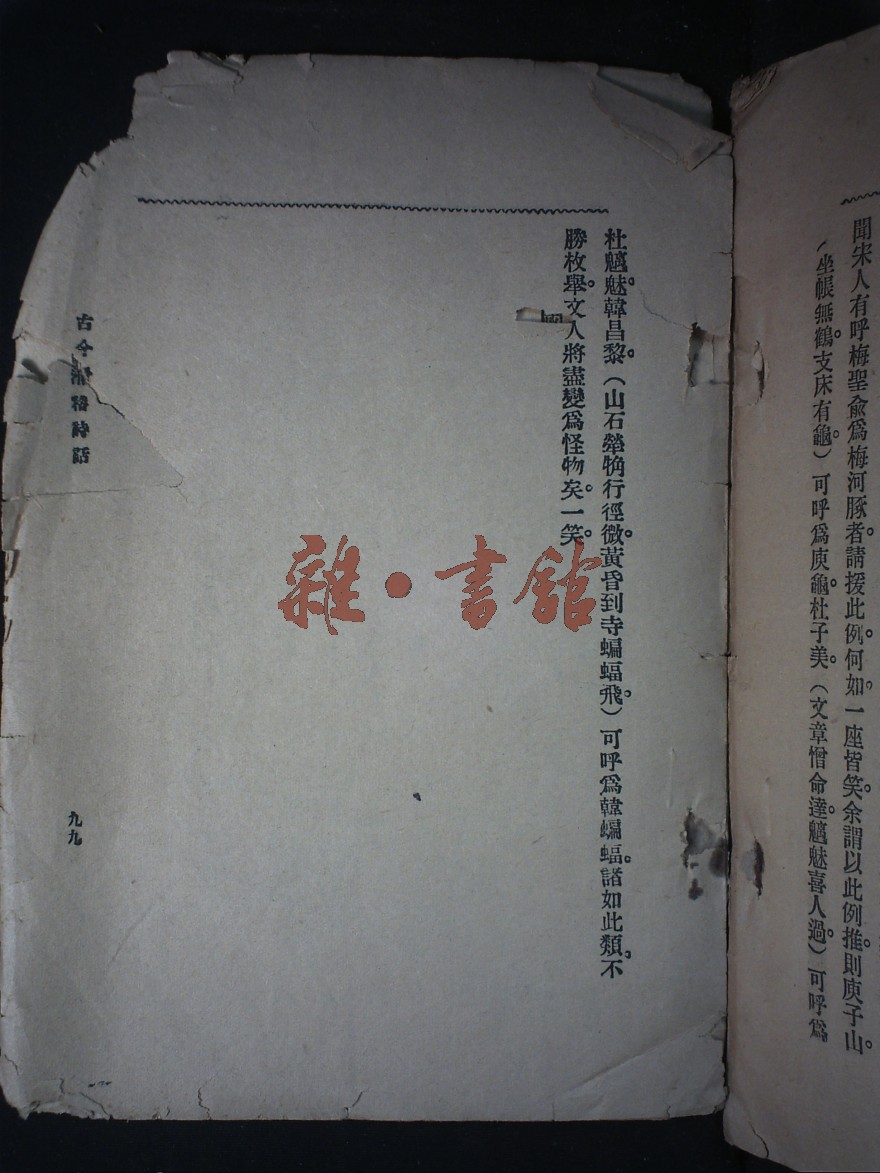 聞宋人有呼梅聖俞爲梅河豚者。請援此例。何如。一座皆笑。余謂以此例推。則庾子山。
（坐帳無鶴。支床有龜。）可呼爲庾龜。杜子美。（文章憎命達。魑魅喜人過。）可呼爲
杜魑魅。韓昌黎。（山石犖确行徑微。黃昏到寺蝙蝠飛。）可呼爲韓蝙蝠。諸如此類。不
勝枚舉。文人將盡變爲怪物矣。一笑。
古今滑稽詩話
九九
雜·書館